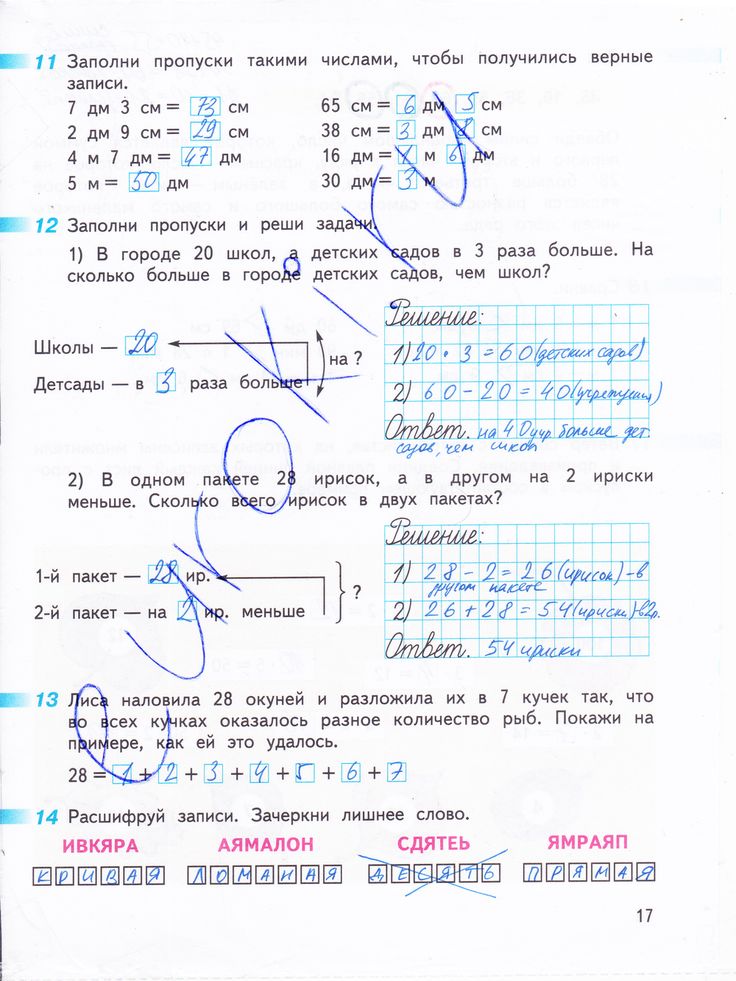 11 Заполни пропуски такими числами, чтобы получились верные
записи.
7 дм 3 см = 73 см 65 см = 6 дм 5 см
2 дм 9 см = 29 см 38 см = 3 дм 8 см
4 м 7 дм = 47 дм 16 дм = 1 м 6 дм
5 м = 50 дм 30 дм = 3 м
12 Заполни пропуски и реши задачи.
1) В городе 20 школ, а детских садов в 3 раза больше. На
сколько больше в городе детских садов, чем школ?
Решение:
Школы — 20
на ?
1) 20 · 3 = 60 (детских садов)
Детсады — в 3 раза больше
2) 60 - 20 = 40
Ответ. на 40 учр больше дет.
садов, чем школ
2) В одном пакете 28 ирисок, а в другом на 2 ириски
меньше. Сколько всего ирисок в двух пакетах?
Решение:
1-й пакет — 28 ир.
?
1) 28 - 2 = 26 (ирисок) - в
другом пакете
2-й пакет — на 2 ир. меньше
2) 26 + 28 = 54 (ириски) - в 2п.
Ответ. 54 ириски
13 Лиса наловила 28 окуней и разложила их в 7 кучек так, что
во всех кучках оказалось разное количество рыб. Покажи на
примере, как ей это удалось.
28 = 1 + 2 + 3 + 4 + 5 + 6 + 7
14 Расшифруй записи. Зачеркни лишнее слово.
ИВКЯРА АЯМАЛОН СДЯТЕЬ ЯМРАЯП
КРИВАЯ ЛОМАНАЯ ДЕСЯТЬ ПРЯМАЯ
17